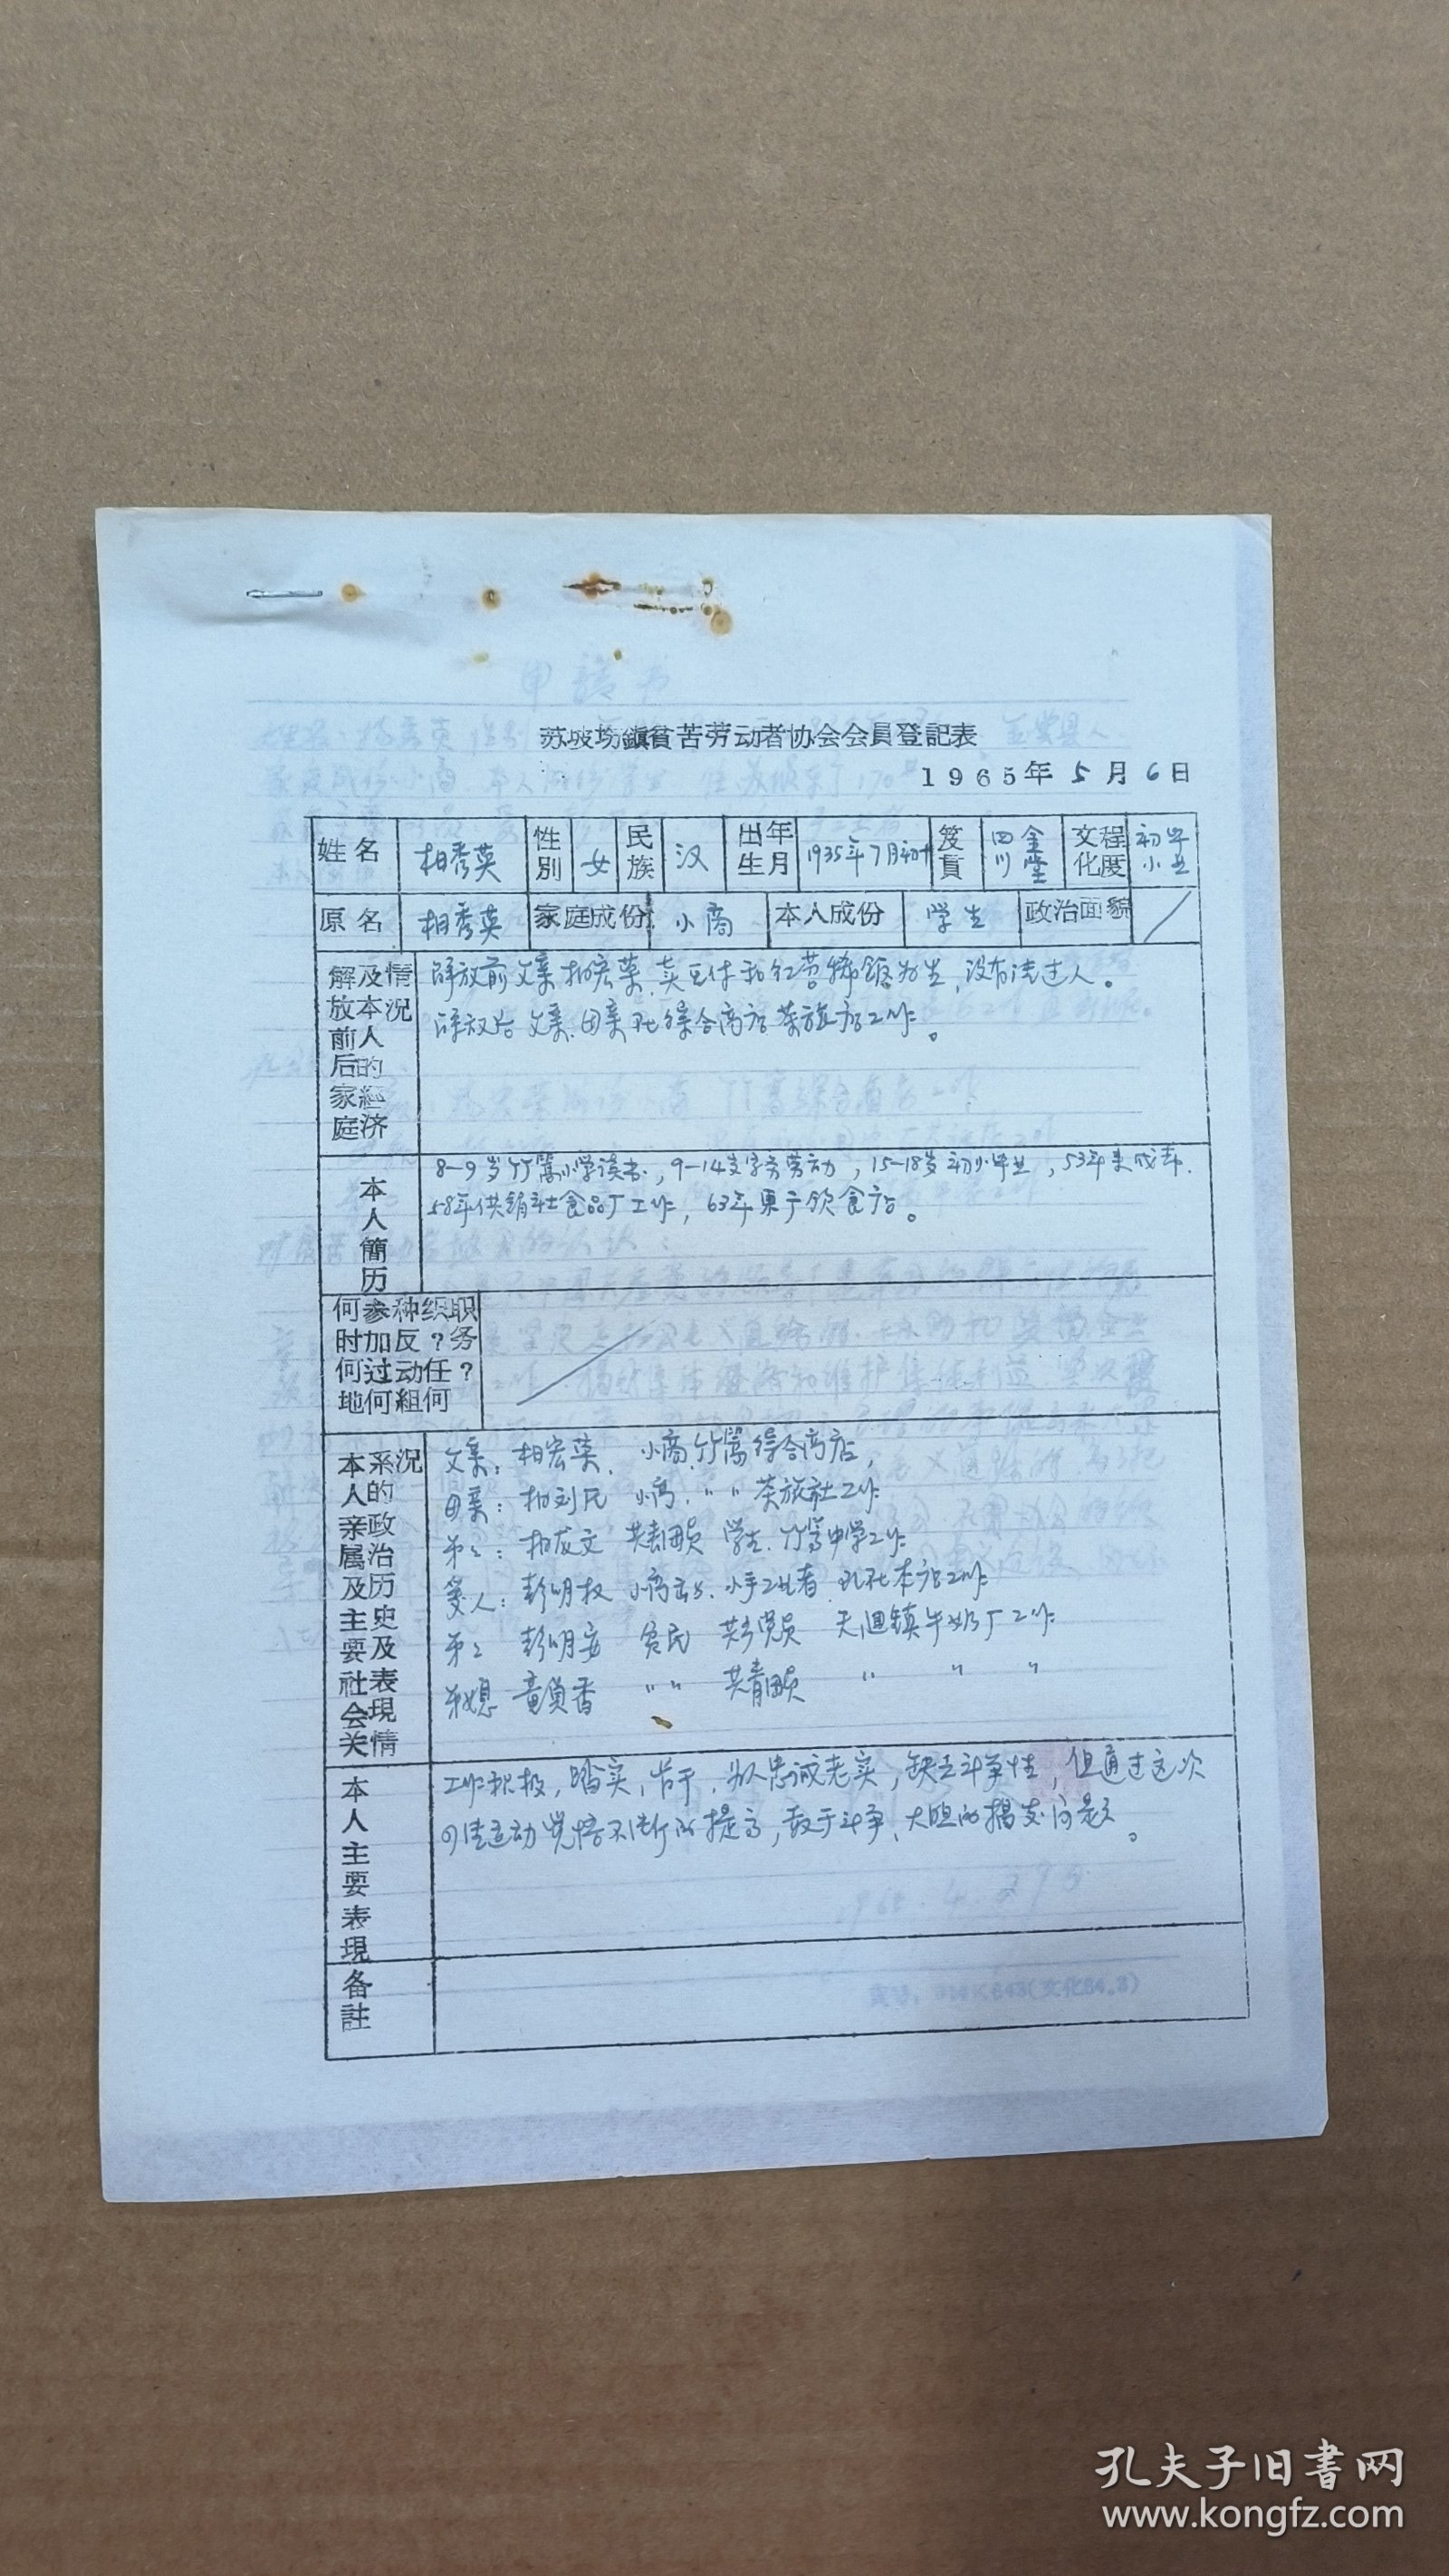 苏坡场鎮貧苦劳动者协会会員登記表
1965年5月6日
姓名 相秀英 性別 女 民族 汉 出生年月 1935年7月初十 笈貫 四川金堂 文化程度 初小毕业
原名 相秀英 家庭成份 小商 本人成份 学生 政治面貌
解放前后家庭及本人的經济情况
解放前父亲相宏荣,卖豆什和红苕稀饭为生,没有请过人。
解放后父亲、母亲在综合商店茶旅店工作。
本人簡历
8-9岁竹篙小学读书,9-14岁家务劳动,15-18岁初小毕业,53年来成都.
58年供銷社食品厂工作,63年果于饮食店。
何时何地参加过何种反动組织?任何职务?
本人亲属及主要社会关系的政治历史及表現情况
父亲:相宏荣. 小商.竹篙综合商店,
母亲:相刘氏 小商. 〃 〃 茶旅社工作
弟弟:相成文 共青团员 学生. 竹篙中学工作
爱人:彭明权 小商 小手工业者. 本店工作
弟弟 彭明安 贫民 共产党员 天迴镇牛奶厂工作
弟媳 童贞香 〃 〃 共青团员 〃 〃 〃
本人主要表現
工作积极,踏实,肯干,为人忠诚老实,缺乏斗争性,但通过这次
四清运动觉悟不断的提高,敢于斗争、大胆的揭发问题。
备註
申請书
孔夫子旧書网
www.kongfz.com